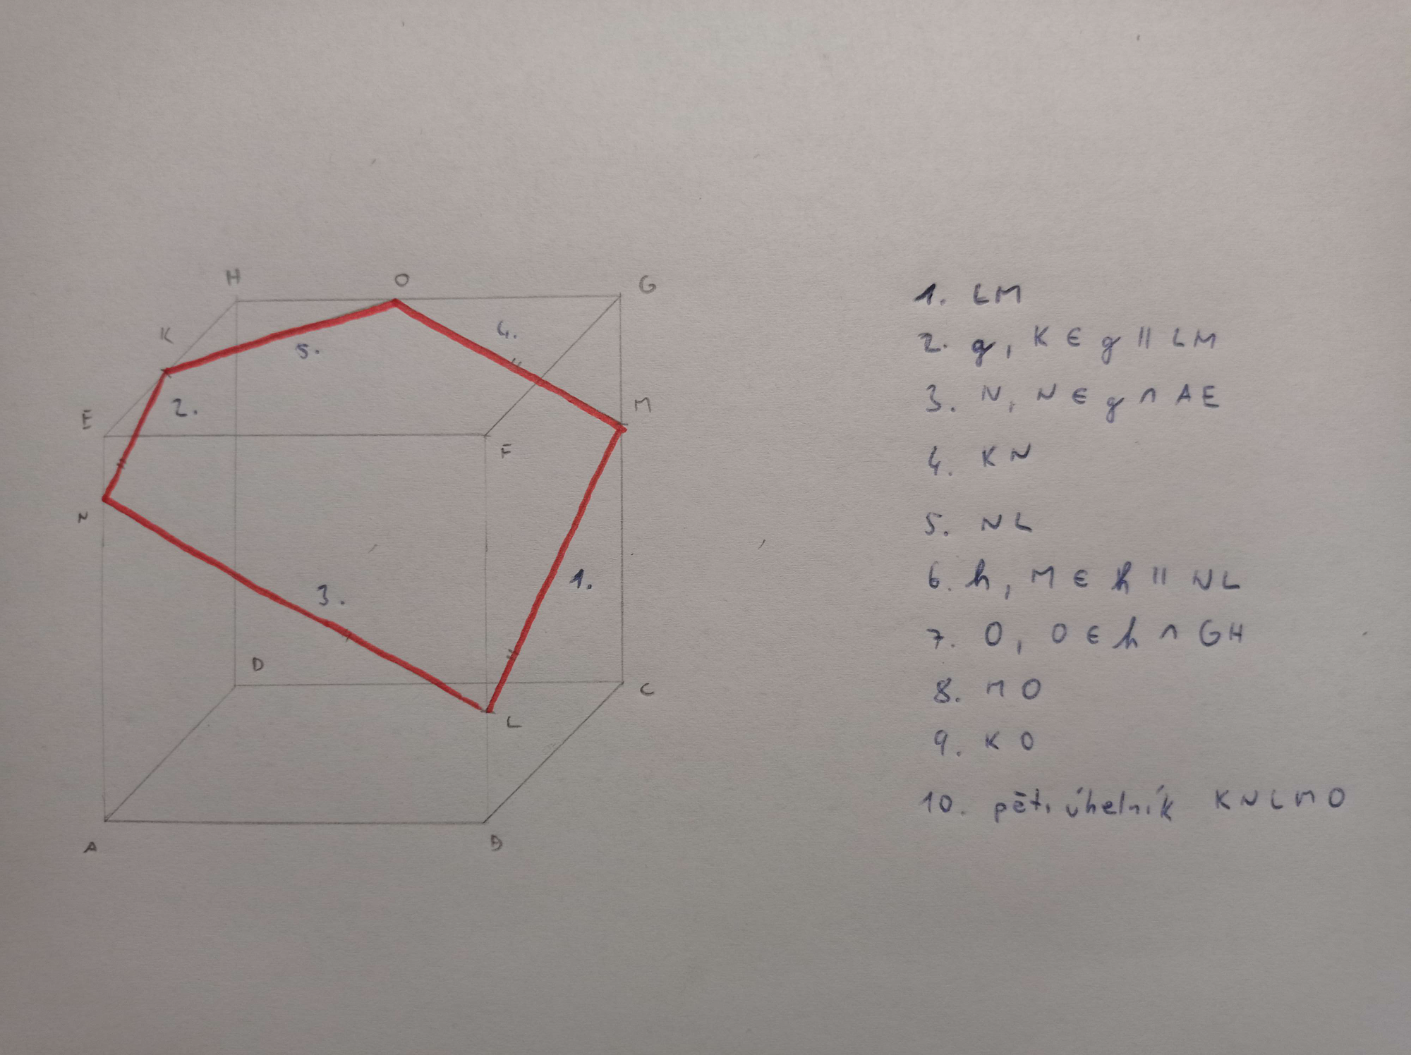 H O G
K 4.
5.
2. M
E F
N
3. 1.
D
L C
A B
1. LM
2. g, K ∈ g ∥ LM
3. N, N ∈ g ∩ AE
4. KN
5. NL
6. h, M ∈ h ∥ NL
7. O, O ∈ h ∩ GH
8. MO
9. KO
10. pětiúhelník KNLMO